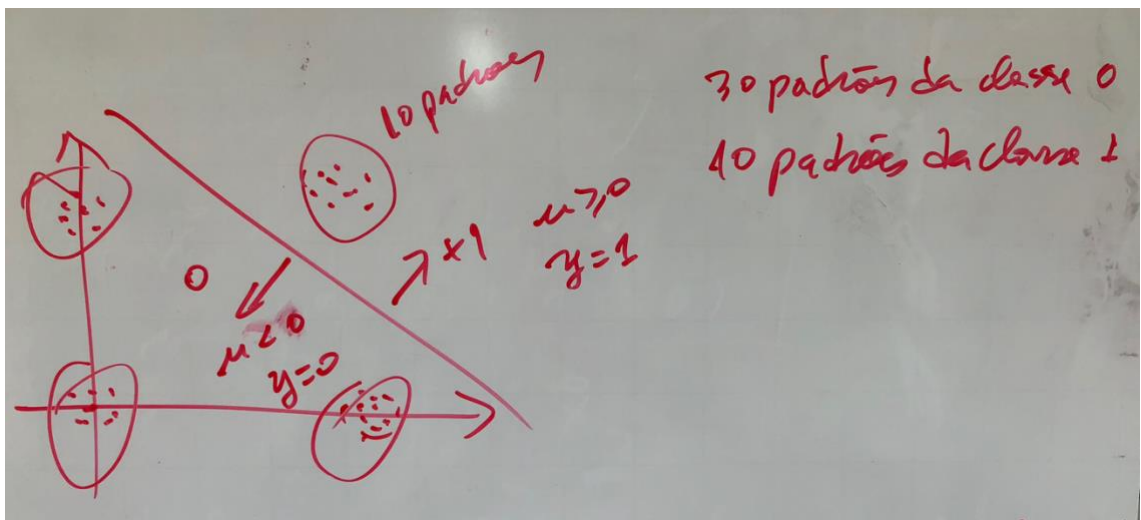 10 padrões
30 padrões da classe 0
10 padrões da classe 1
+1
u ≥ 0
y = 1
0
u < 0
y = 0